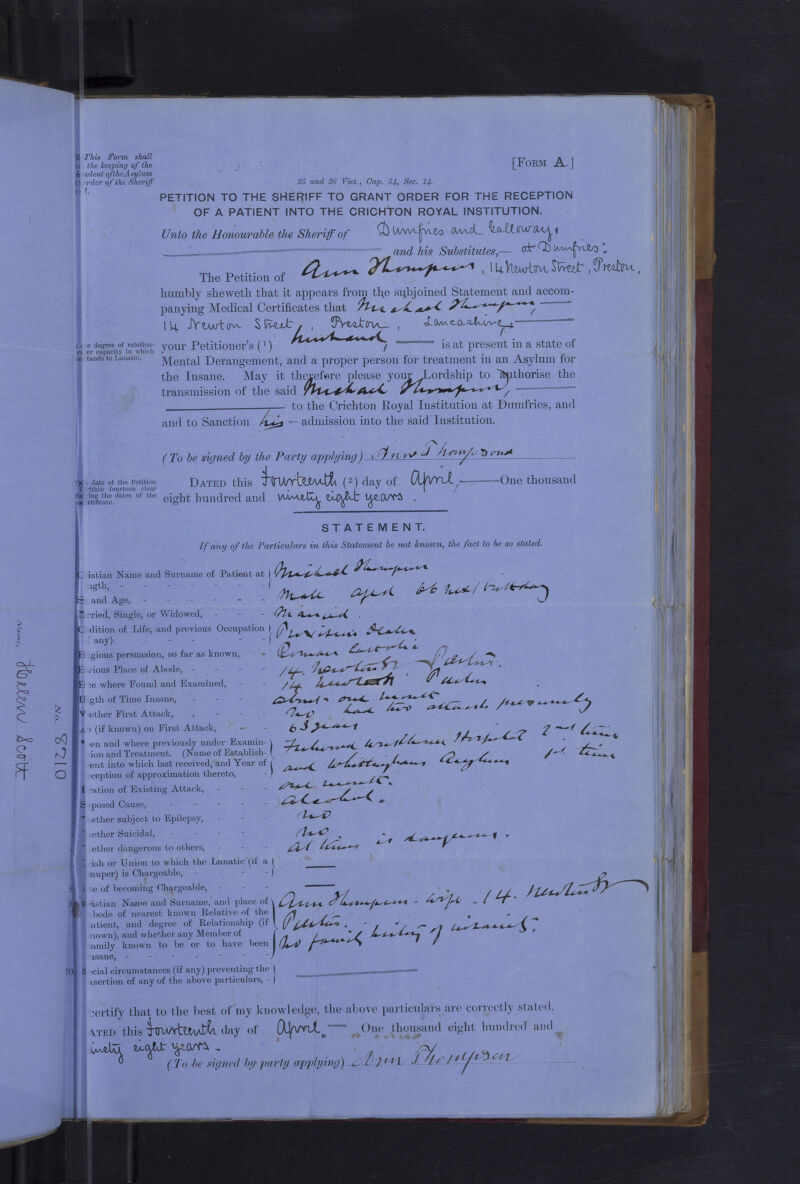 This Form shall
the keeping of the
dent of the Asylum
rder of the Sheriff
[FORM A.]
25 and 26 Vict., Cap. 54, Sec. 14.
PETITION TO THE SHERIFF TO GRANT ORDER FOR THE RECEPTION
OF A PATIENT INTO THE CRICHTON ROYAL INSTITUTION.
Unto the Honourable the Sheriff of Dumfries and Galloway,
and his Substitutes,— at Dumfries:
The Petition of Ann Thompson, 14 Newton Street, Preston,
humbly sheweth that it appears from the subjoined Statement and accom-
panying Medical Certificates that Michael Thompson,
14 Newton Street, Preston, Lancashire,
e degree of relation-
or capacity in which
tands to Lunatic.
your Petitioner's (1) husband, is at present in a state of
Mental Derangement, and a proper person for treatment in an Asylum for
the Insane. May it therefore please your Lordship to authorise the
transmission of the said Michael Thompson,
to the Crichton Royal Institution at Dumfries, and
and to Sanction his admission into the said Institution.
(To be signed by the Party applying) Anne Thompson
date of the Petition
ithin fourteen clear
ing the dates of the
rtificate.
DATED this fourteenth (2) day of April, One thousand
eight hundred and ninety eight years.
STATEMENT.
If any of the Particulars in this Statement be not known, the fact to be so stated.
istian Name and Surname of Patient at
ngth, Michael Thompson
and Age, Male aged 66 next birthday
rried, Single, or Widowed, Married.
dition of Life, and previous Occupation
any). Furniture Dealer
gious persuasion, so far as known, Roman Catholic
vious Place of Abode, 14. Newton St Preston.
ce where Found and Examined, 14 Newton Preston
gth of Time Insane, about one month
ether First Attack, No had two attacks previously
(if known) on First Attack, 63 years
en and where previously under Examin-
ion and Treatment, (Name of Establish-
ent into which last received, and Year of
ception of approximation thereto, Workhouse Hospital 2nd time
and Whittingham Asylum 1st time
ration of Existing Attack, one month.
posed Cause, Alcohol.
ether subject to Epilepsy, No
ether Suicidal, No.
ether dangerous to others, At times is dangerous.
ish or Union to which the Lunatic (if a
auper) is Chargeable,
te of becoming Chargeable,
istian Name and Surname, and place of
bode of nearest known Relative of the
atient, and degree of Relationship (if
nown), and whether any Member of
amily known to be or to have been
nsane, Ann Thompson - wife - 14. Newton St
Preston.
No family history of insanity.
10. ecial circumstances (if any) preventing the
nsertion of any of the above particulars,
certify that to the best of my knowledge, the above particulars are correctly stated.
ATED this fourteenth day of April, One thousand eight hundred and
inety eight years.
(To be signed by party applying) Ann Thompson
Name, Helen Scott
No. 8210